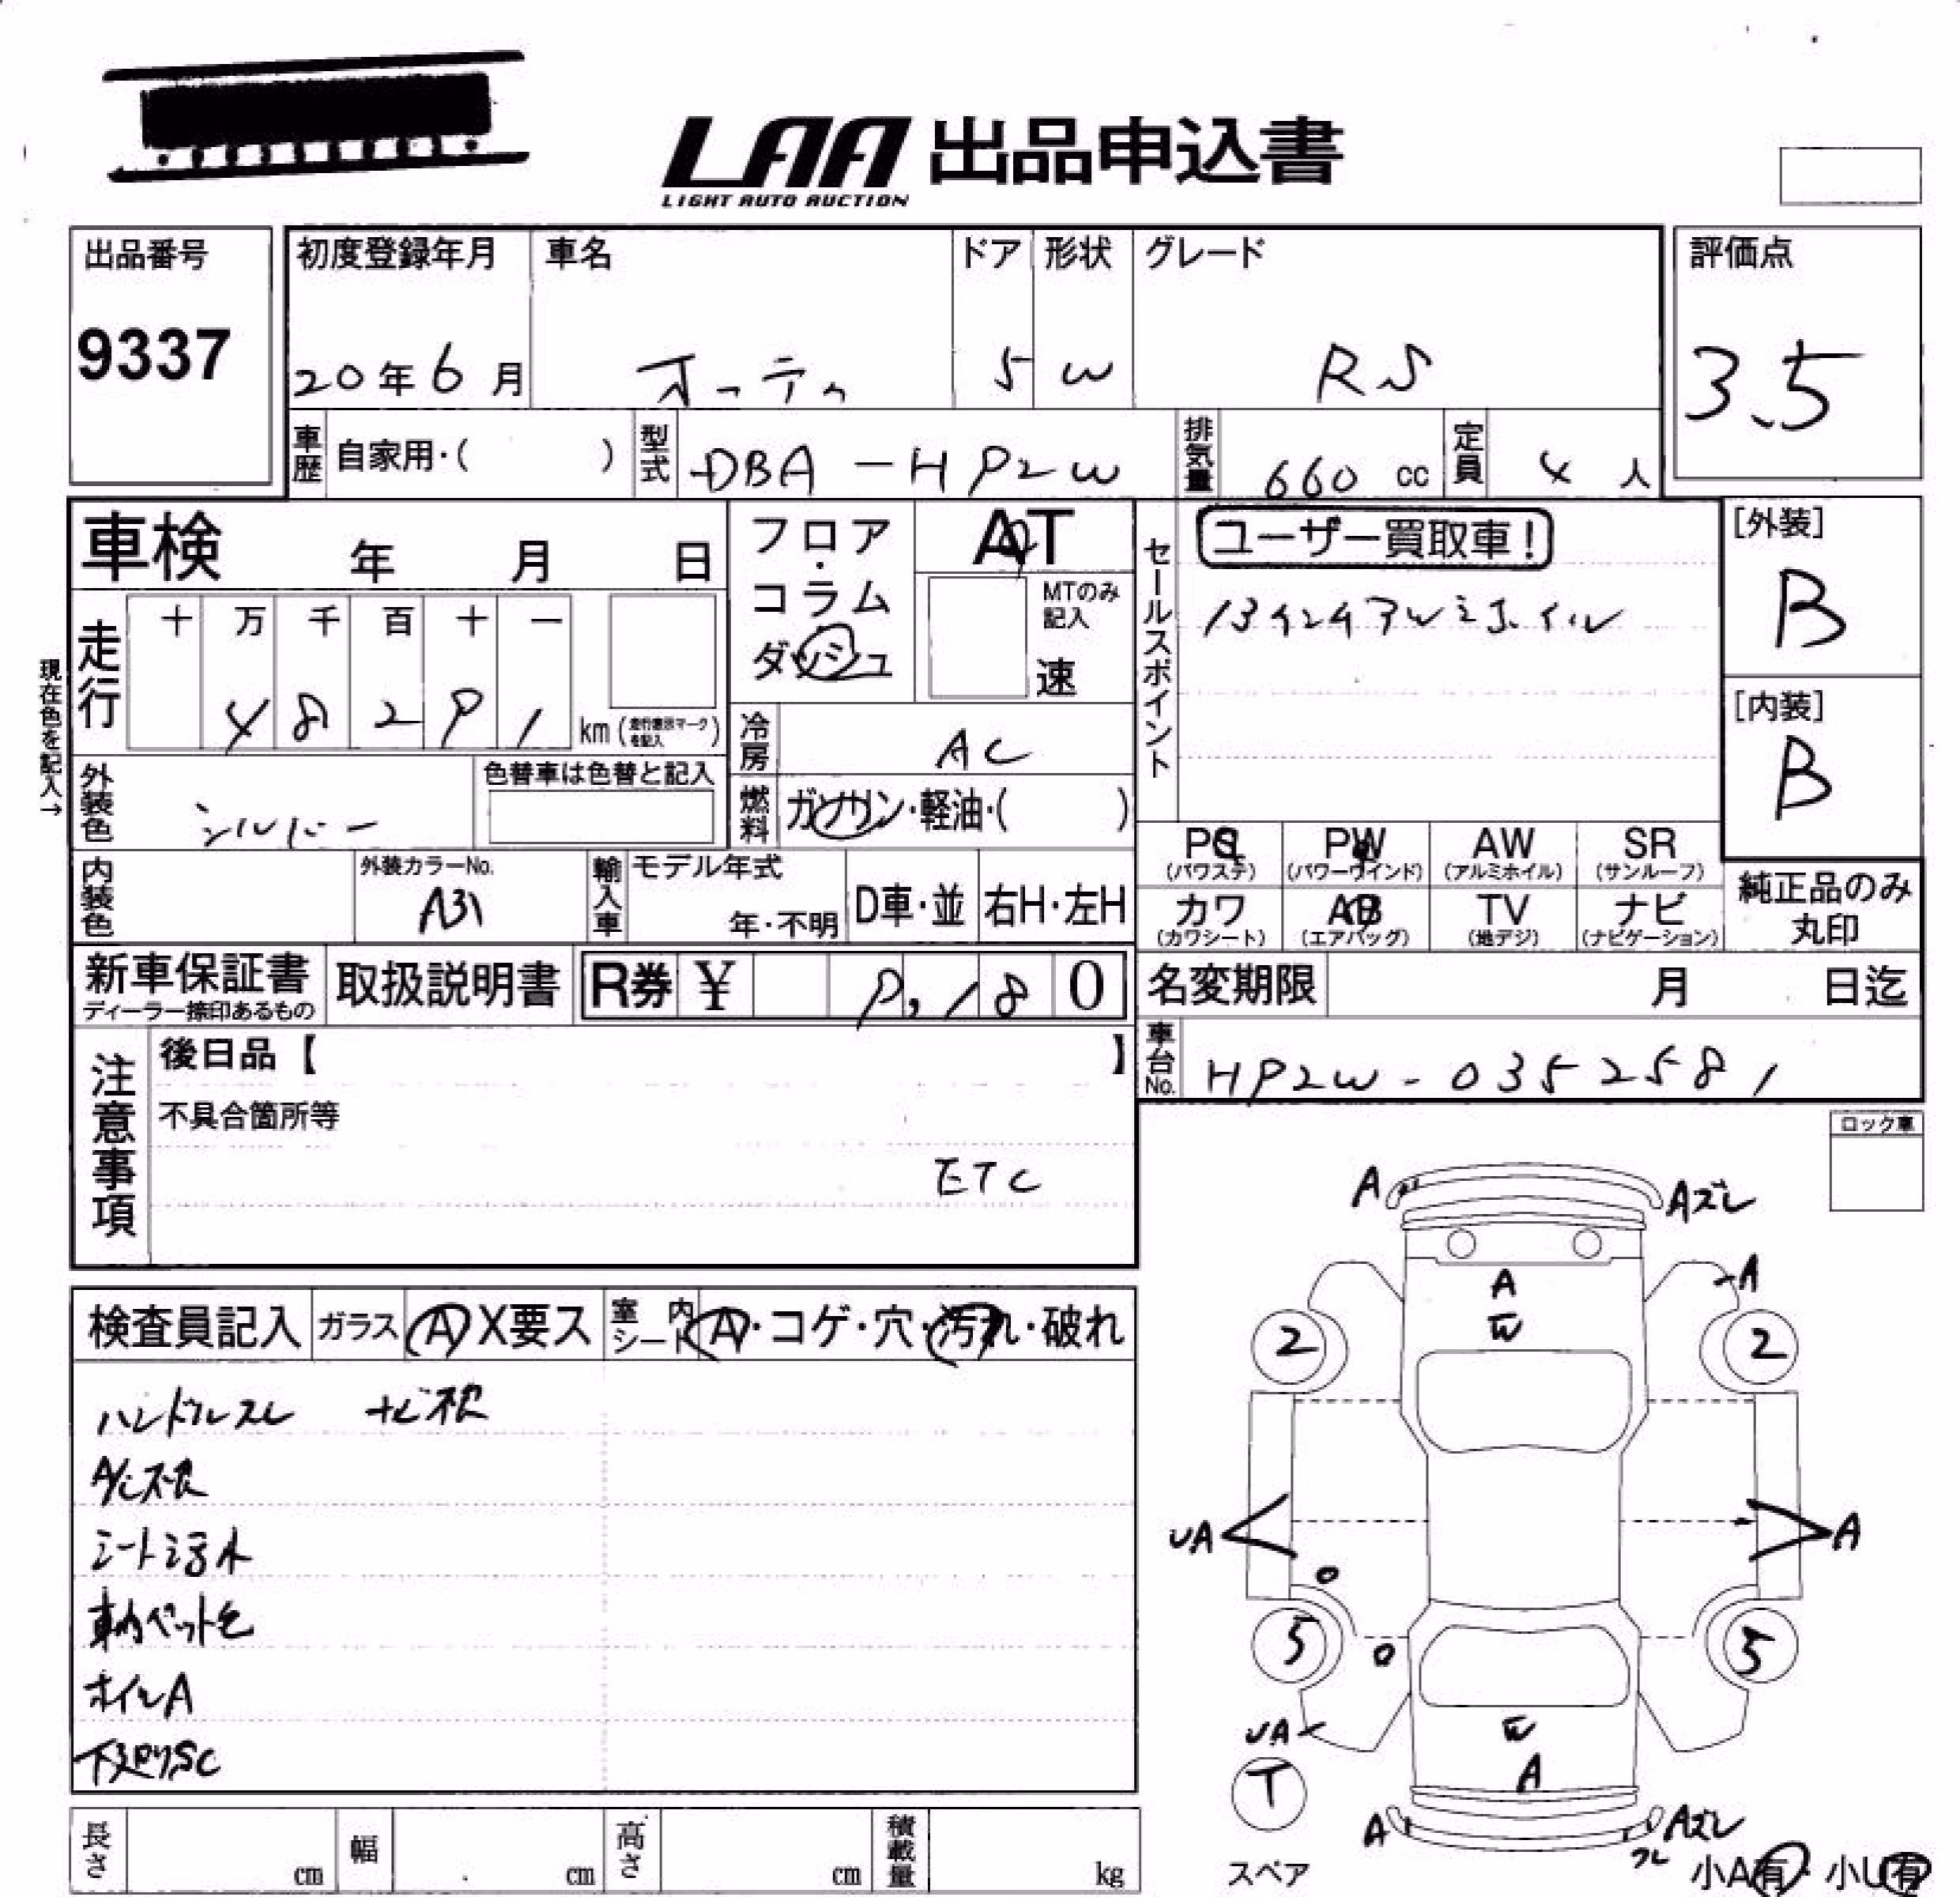 LAA 出品申込書
LIGHT AUTO AUCTION
出品番号
9337
初度登録年月
20年6月
車名
オッティ
ドア
5
形状
W
グレード
RS
評価点
3.5
車歴 自家用・( )
型式 DBA-HP2W
排気量 660 cc
定員 4 人
車検 年 月 日
フロア・コラム
ダッシュ
AT
MTのみ記入
速
走行
十 万 千 百 十 一
4 8 2 9 1 km (走行表示マークを記入)
現在色を記入→
外装色 シルバー
色替車は色替と記入
冷房 AC
燃料 ガソリン・軽油・( )
セールスポイント
ユーザー買取車!
[外装]
B
[内装]
B
PS (パワステ)
PW (パワーウインド)
AW (アルミホイル)
SR (サンルーフ)
カワ (カワシート)
AB (エアバッグ)
TV (地デジ)
ナビ (ナビゲーション)
純正品のみ
丸印
内装色
外装カラーNo.
A31
輸入車
モデル年式
年・不明
D車・並
右H・左H
新車保証書
ディーラー捺印あるもの
取扱説明書
R券 ¥ 9,180
名変期限 月 日迄
車台No. HP2W-0352581
注意事項
後日品【 】
不具合箇所等
ETC
ロック車
検査員記入
ガラス A X要ス
室内シート A・コゲ・穴・汚れ・破れ
ハンドルスレ
シート汚れ
ホイルA
下廻りSC
A
Aズレ
A
A
W
2
2
UA
A
5
5
UA
W
A
T
A
Aズレ
スペア
小A有・小U有
長さ cm
幅 cm
高さ cm
積載量 kg